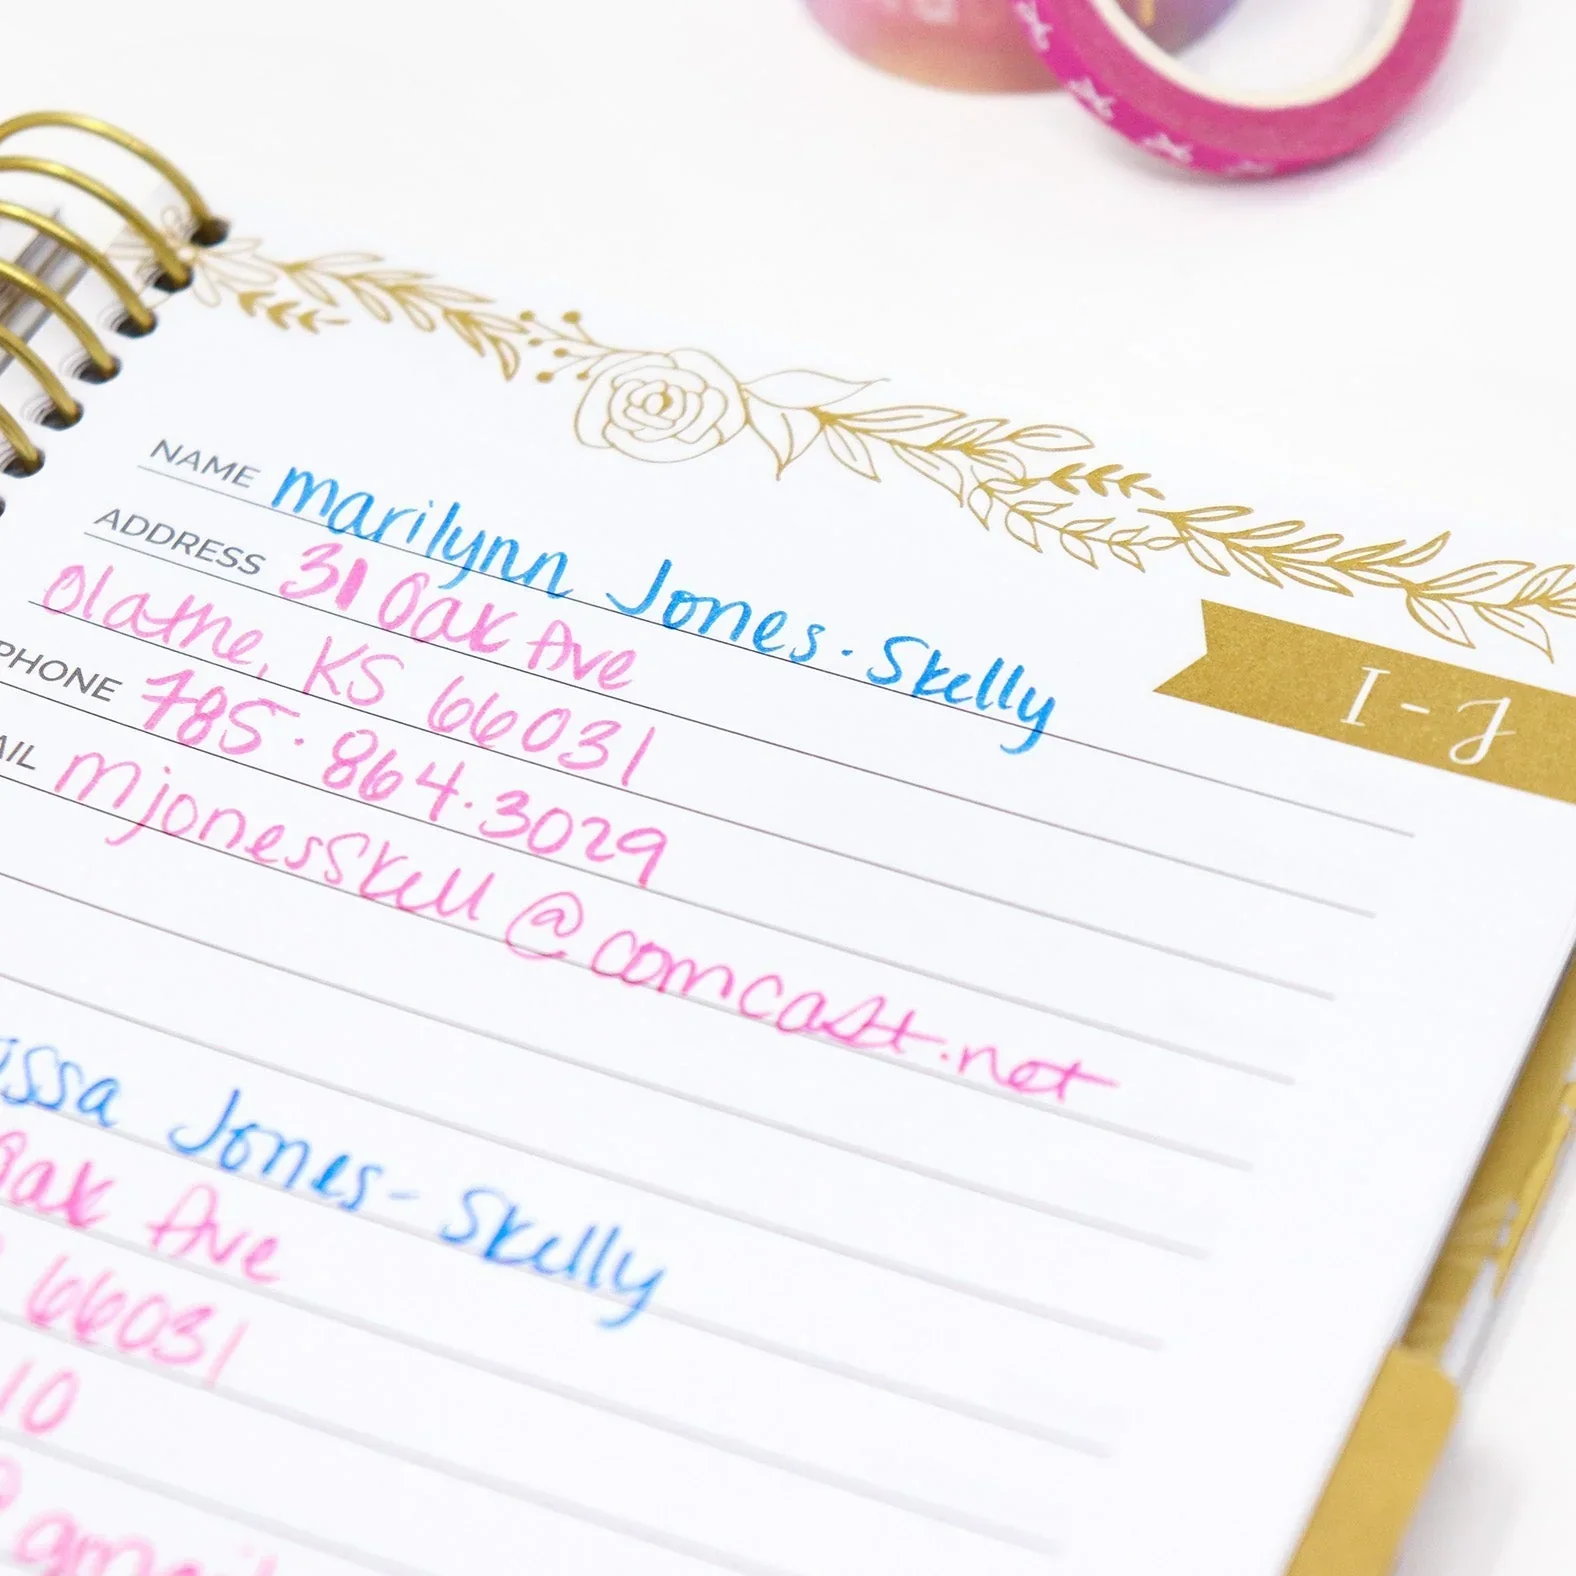 NAME marilynn Jones-Skelly
ADDRESS 31 Oak Ave
Olathe, KS 66031
PHONE 785.864.3029
mjonesskell@comcast.net
I-J
Jones-Skelly
Oak Ave
66031
10